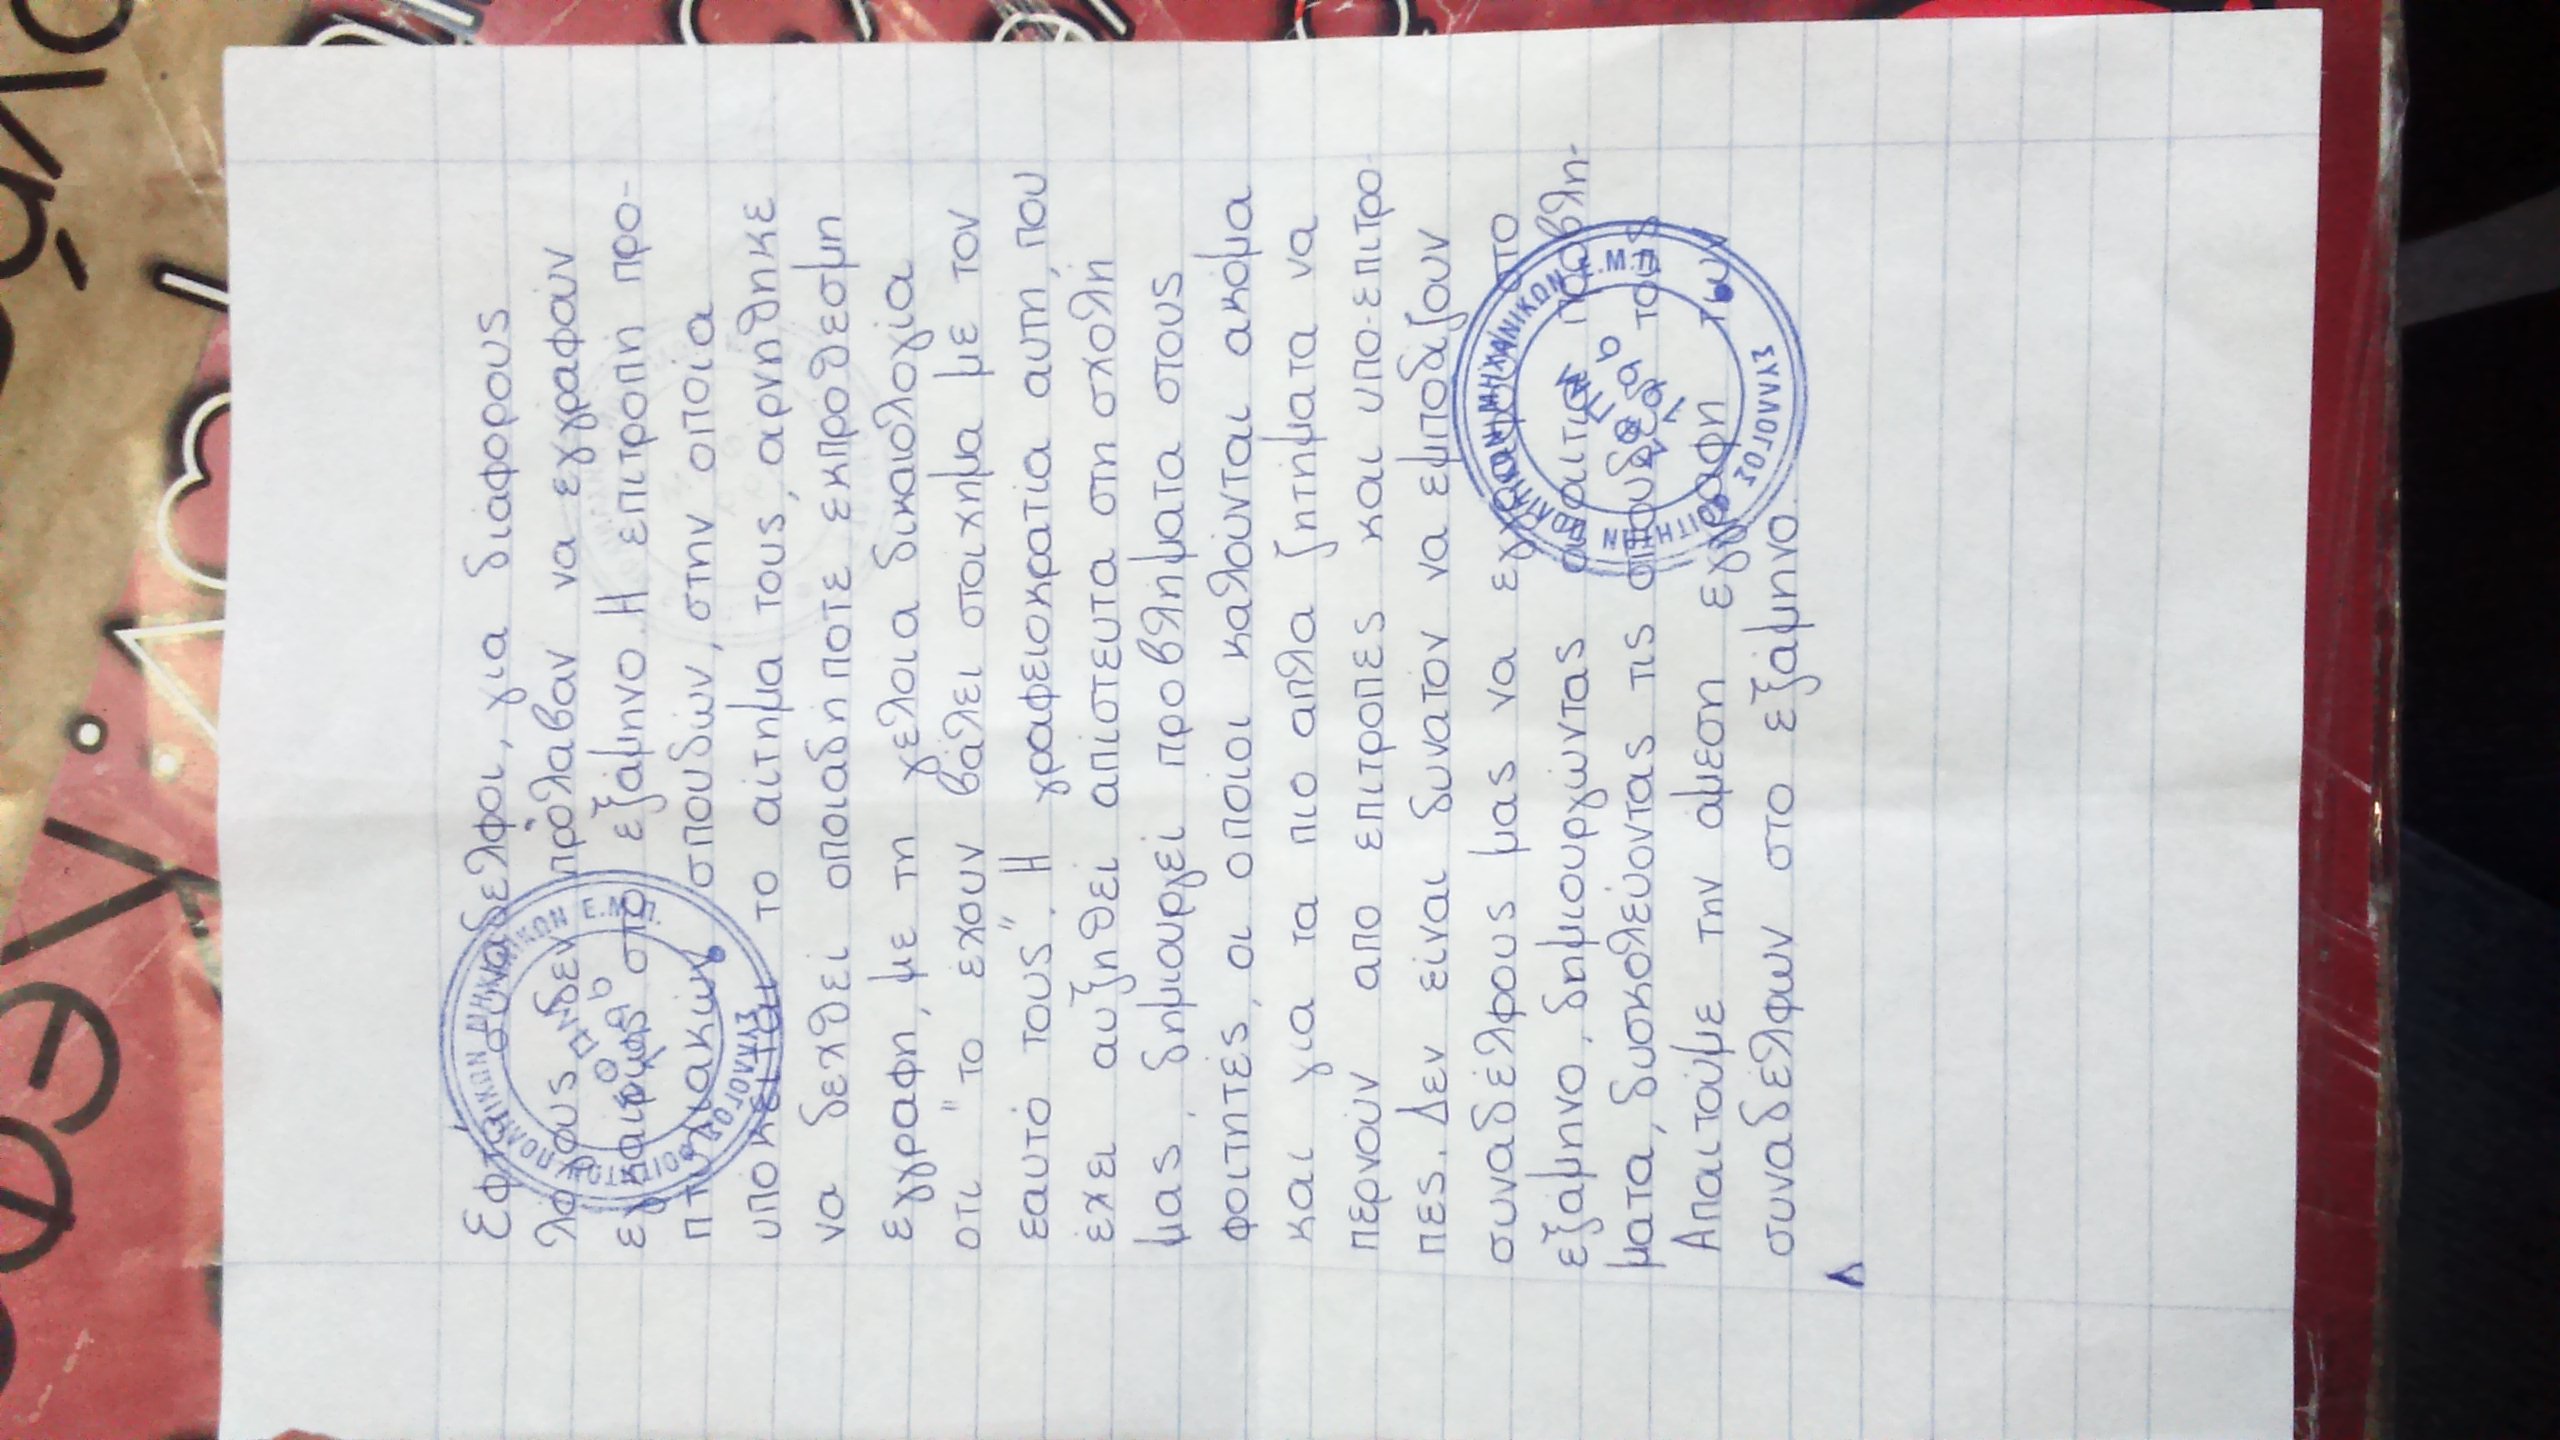 Εφτά συνάδελφοι, για διάφορους
λόγους δεν πρόλαβαν να εγγραφάυν
εγκαίρως στο εξάμηνο. Η επιτροπή προ-
πτυχιακών σπουδών, στην οποία
υπόκειται το αίτημα τους, αρνήθηκε
να δεχθεί οποιαδήποτε εκπρόθεσμη
εγγραφή, με τη γελοια δικαιολογία
οτι "το έχουν βάλει στοιχημα με τον
εαυτό τους". Η γραφειοκρατία αυτη, που
έχει αυξηθεί απίστευτα στη σχολή
μας, δημιουργεί προβλήματα στους
φοιτητές, οι οποιοι καλούνται ακόμα
και για τα πιο απλα ζητήματα να
περνούν απο επιτροπες και υπο-επιτρο-
πες. Δεν είναι δυνατον να εμποδίζουν
συναδέλφους μας να στο
εξάμηνο, δημιουργώντας προβλή-
ματα, δυσκολεύοντας τις σπουδές τους
Απαιτούμε την άμεση εγγραφή των
συναδέλφων στο εξάμηνο.
ΣΥΛΛΟΓΟΣ ΦΟΙΤΗΤΩΝ ΠΟΛΙΤΙΚΩΝ ΜΗΧΑΝΙΚΩΝ Ε.Μ.Π.
ΣΥΛΛΟΓΟΣ ΦΟΙΤΗΤΩΝ ΠΟΛΙΤΙΚΩΝ ΜΗΧΑΝΙΚΩΝ Ε.Μ.Π.